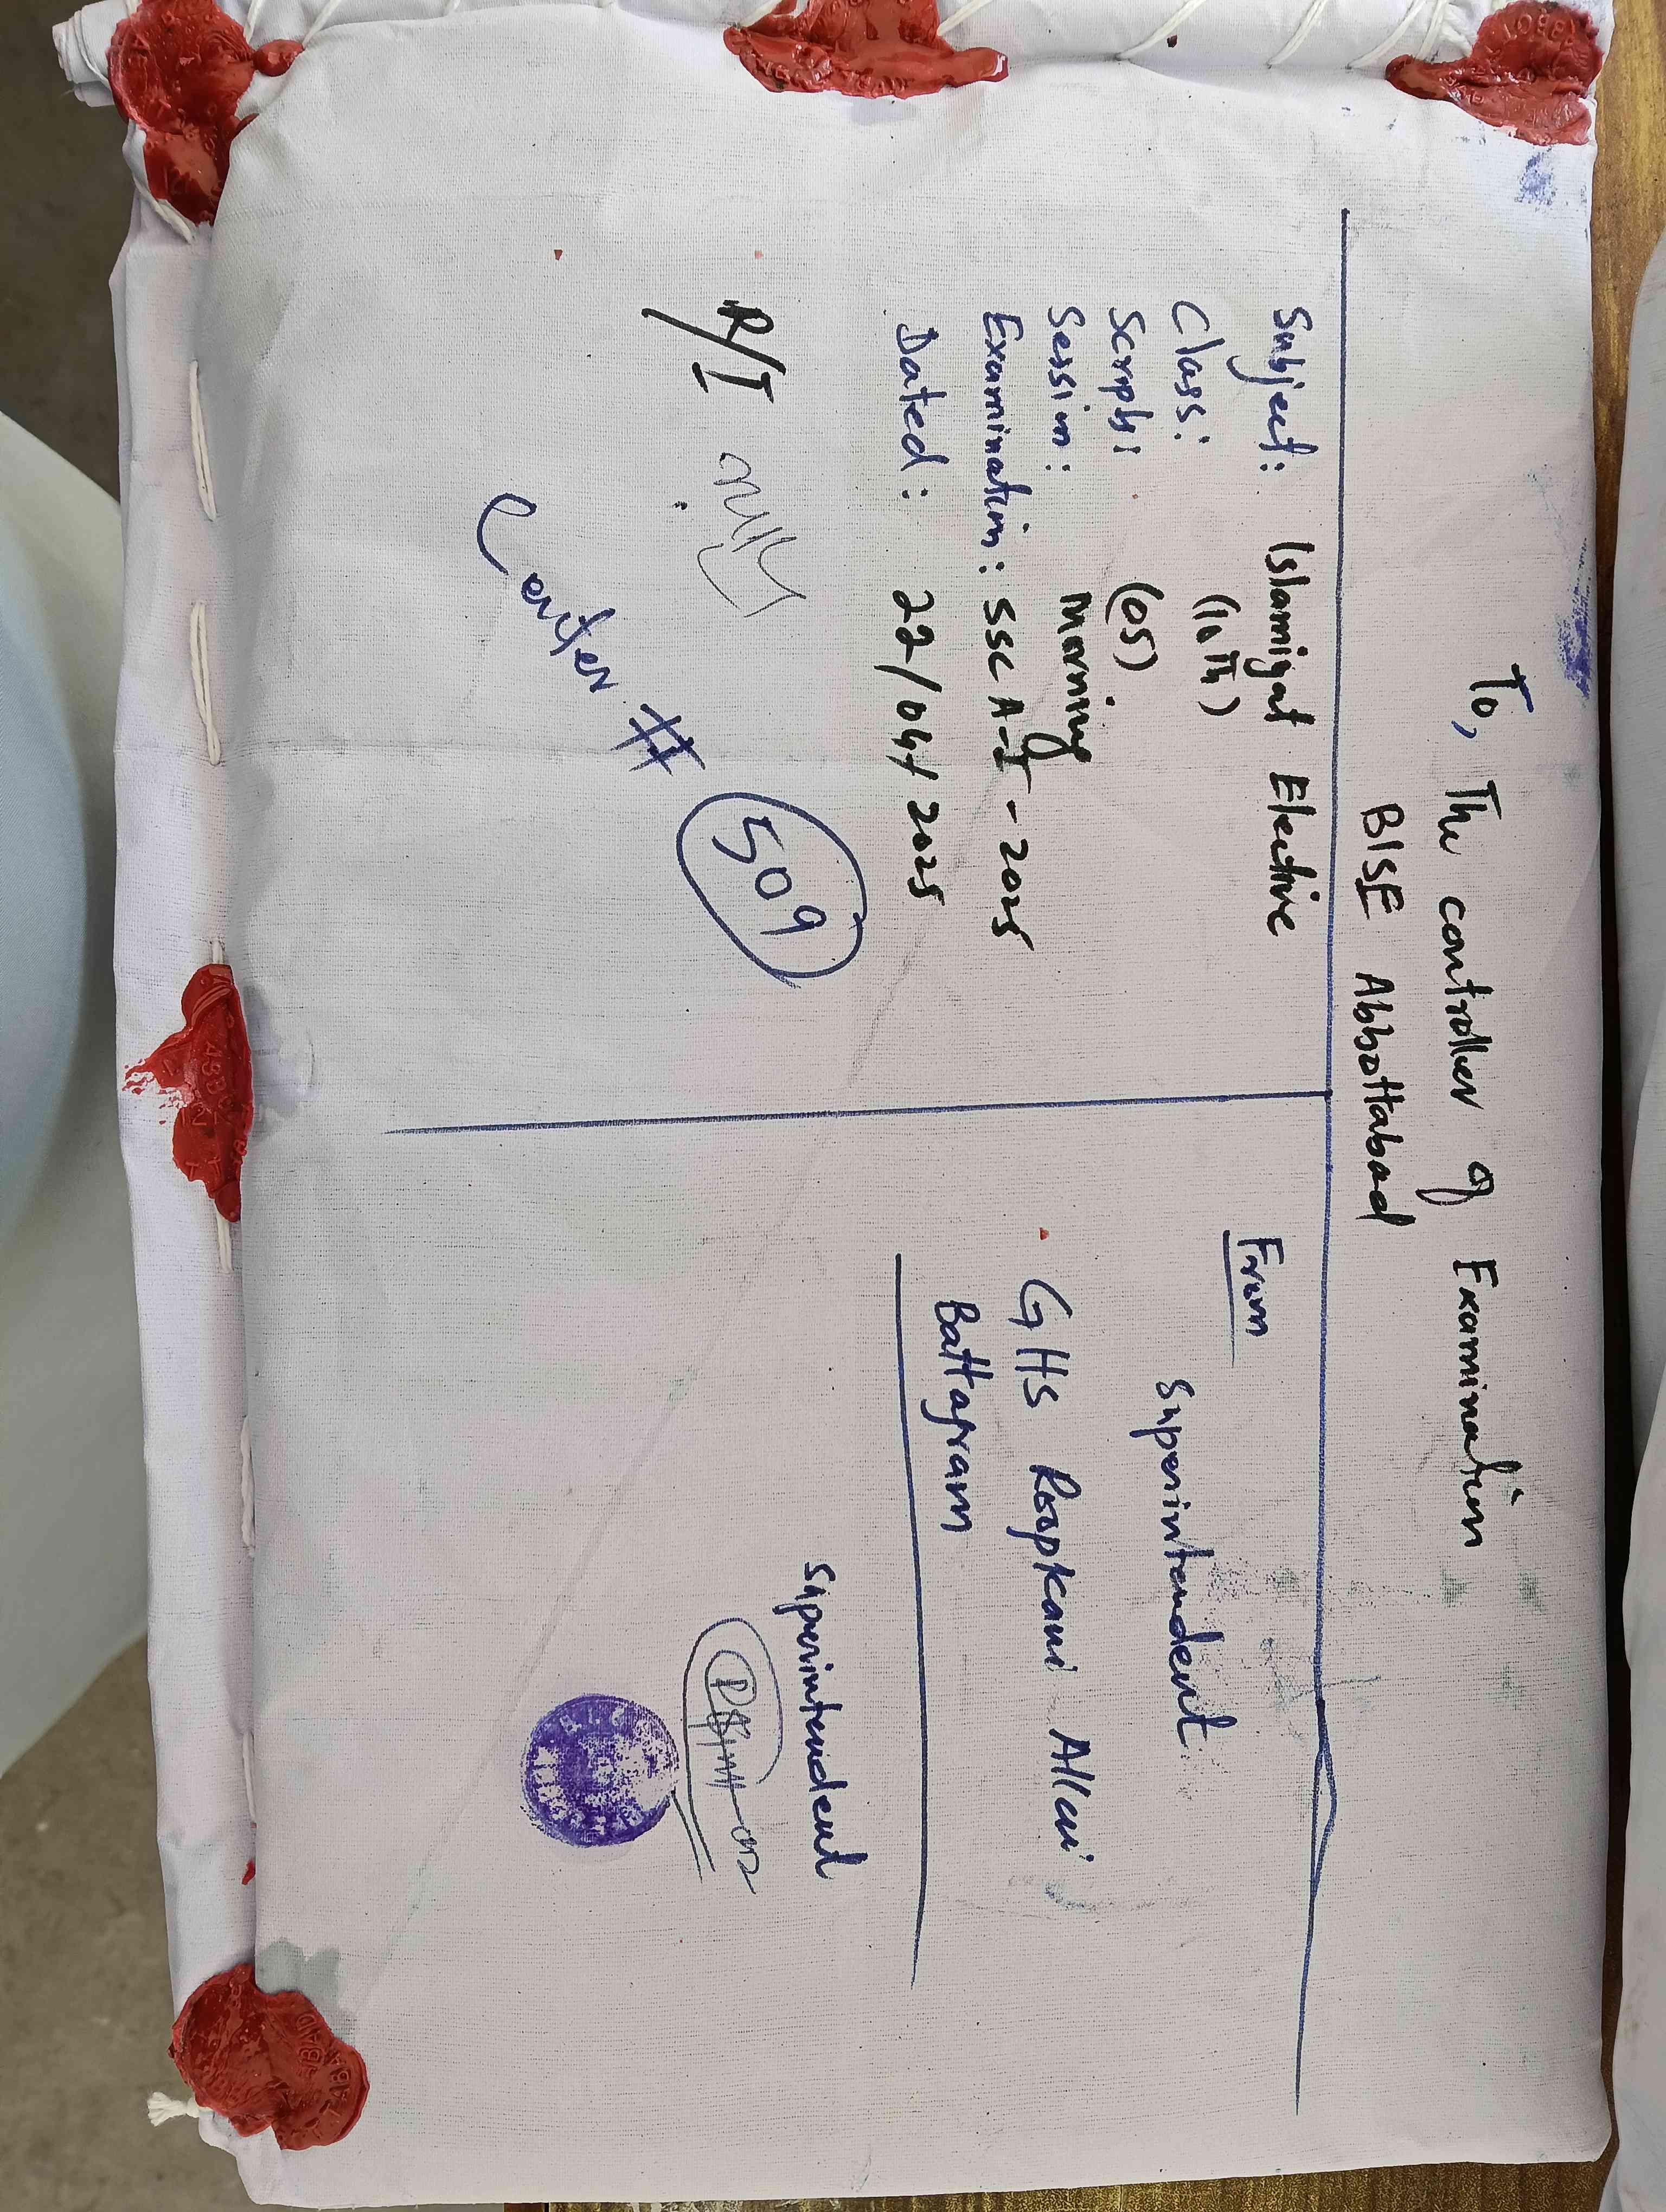 To, The controller of Examination
BISE Abbottabad
Subject: Islamiyat Elective
Class: (10th)
Scripts: (05)
Session: Morning
Examination: SSC A-I-2025
Dated: 22/04/2025
R/I
Center # 509
From
Superintendent
GHS Roopkani Allai
Battagram
Superintendent